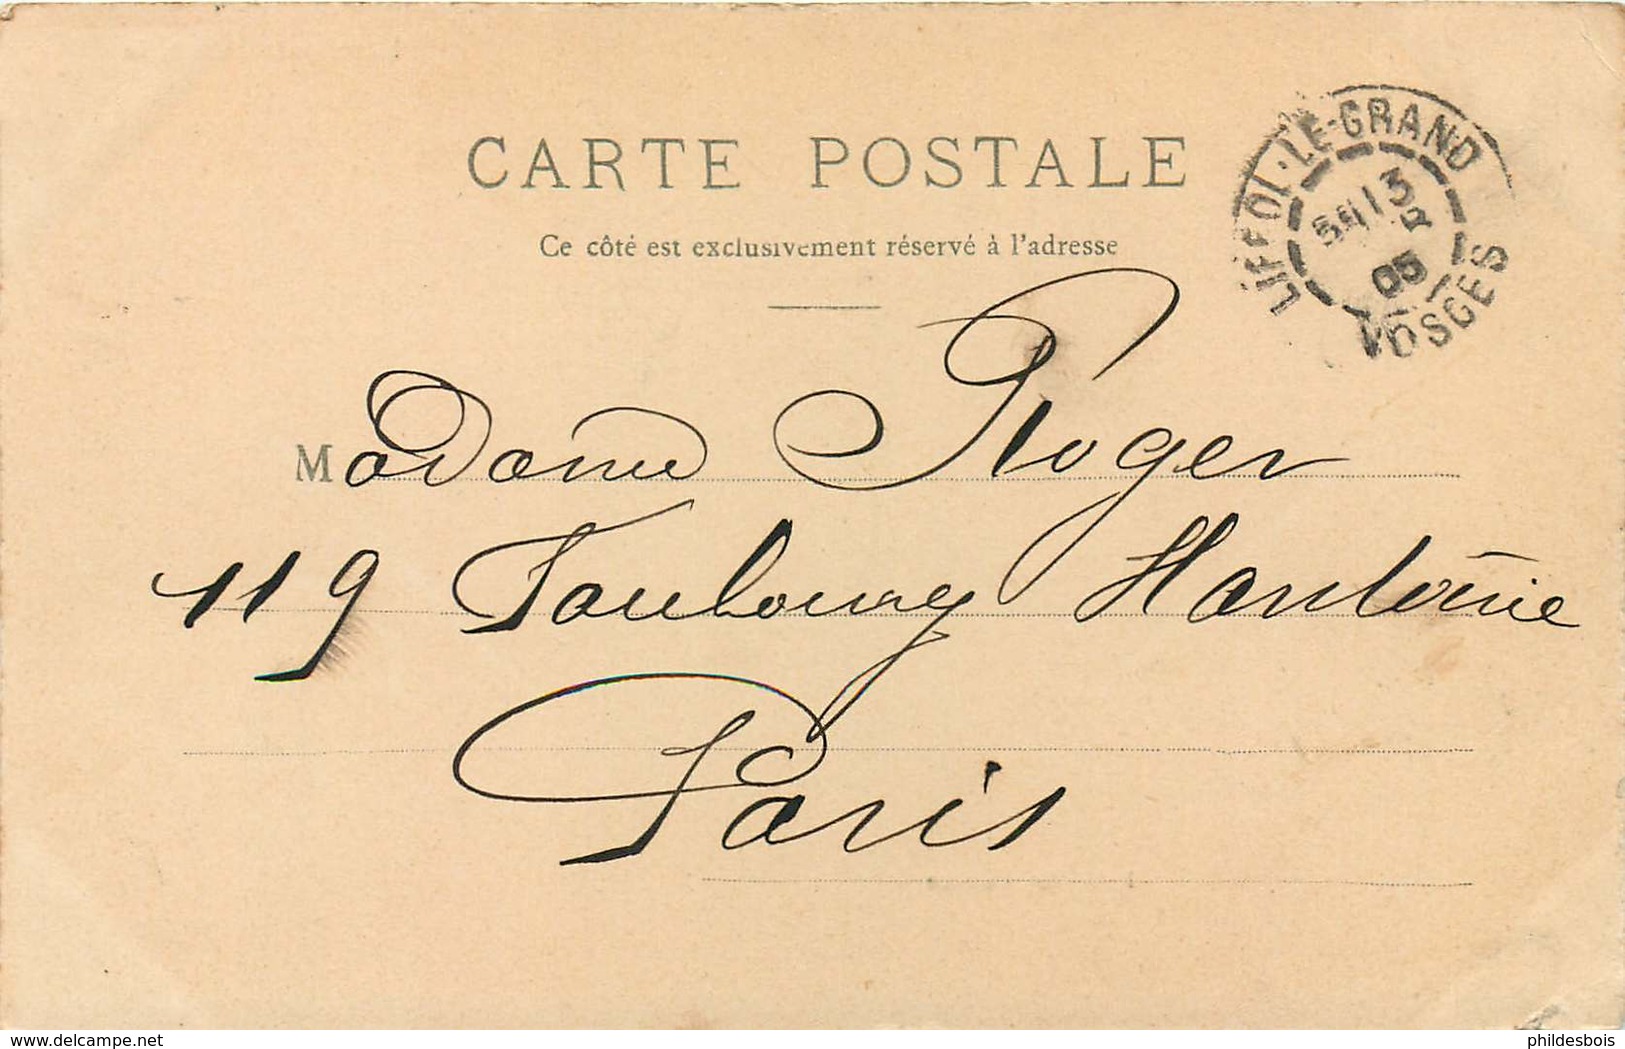 CARTE POSTALE
Ce côté est exclusivement réservé à l'adresse
LIFFOL-LE-GRAND
13
05
VOSGES
Madame Roger
119 Faubourg Hantoine
Paris
delcampe.net
philidesbois